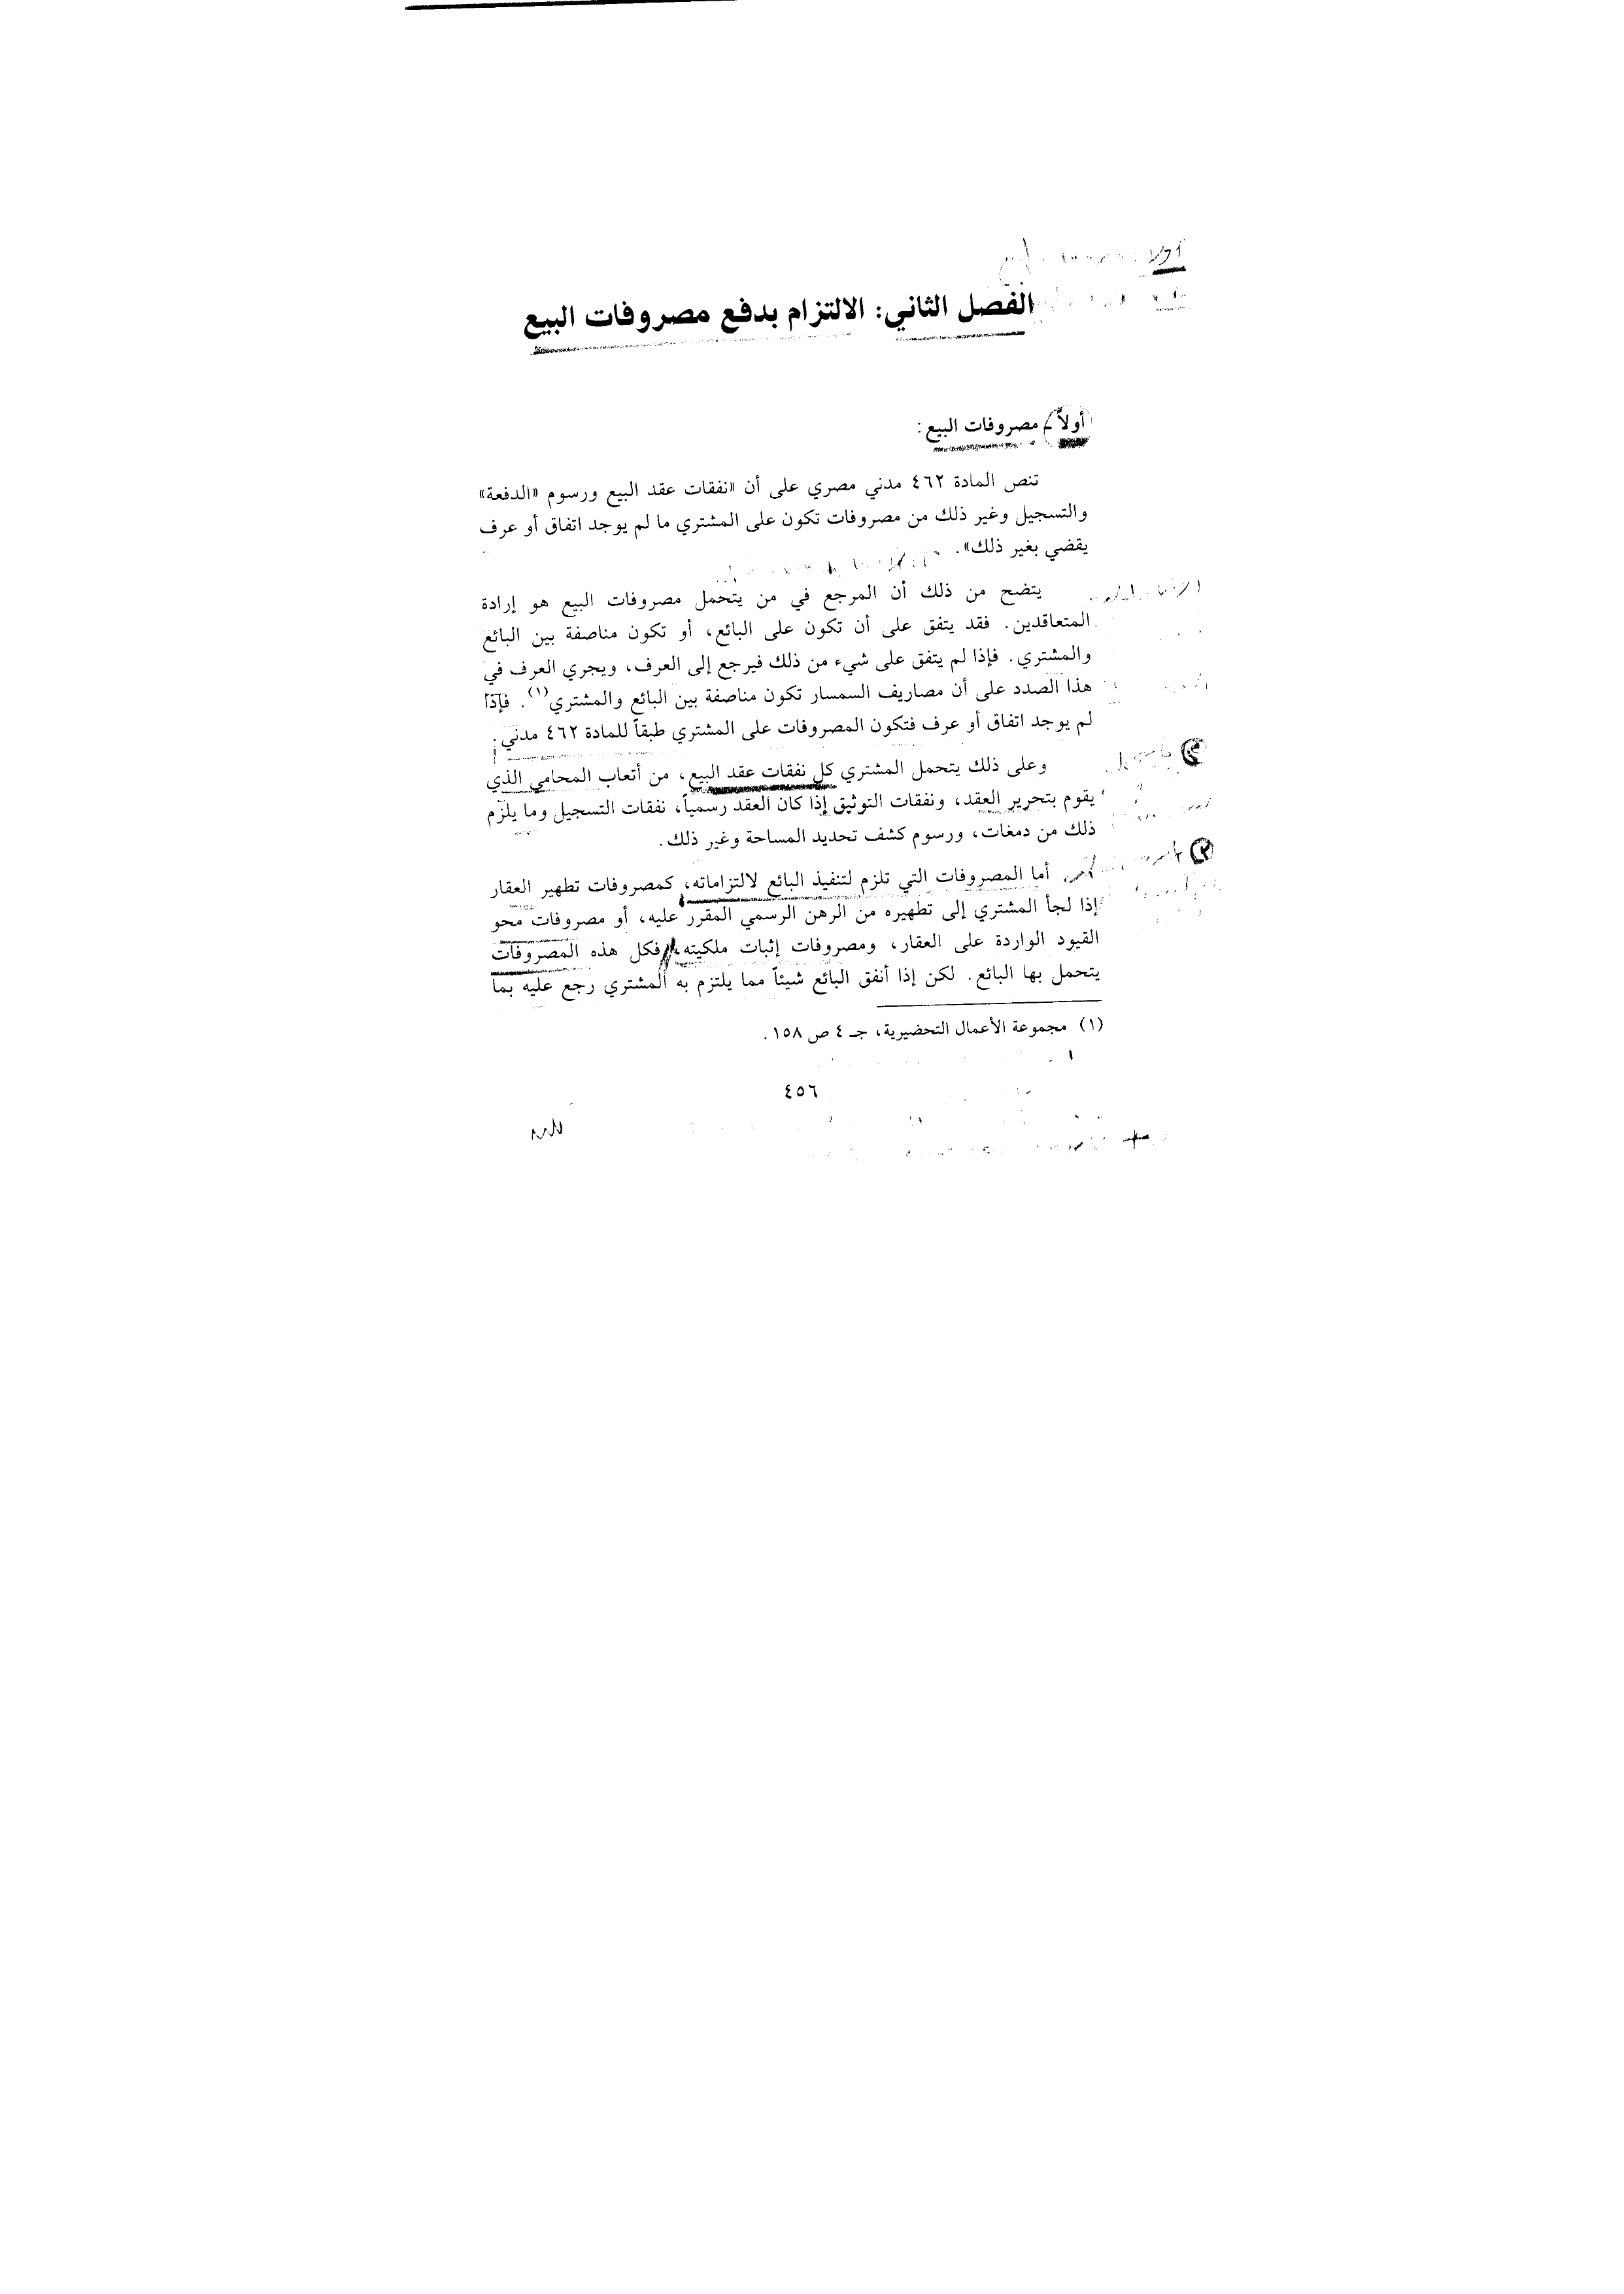 أولا
الفصل الثاني: الالتزام بدفع مصروفات البيع
أولاً - مصروفات البيع:
تنص المادة ٤٦٢ مدني مصري على أن «نفقات عقد البيع ورسوم «الدفعة»
والتسجيل وغير ذلك من مصروفات تكون على المشتري ما لم يوجد اتفاق أو عرف
يقضي بغير ذلك».
يتضح من ذلك أن المرجع في من يتحمل مصروفات البيع هو إرادة
المتعاقدين. فقد يتفق على أن تكون على البائع، أو تكون مناصفة بين البائع
والمشتري. فإذا لم يتفق على شيء من ذلك فيرجع إلى العرف، ويجري العرف في
هذا الصدد على أن مصاريف السمسار تكون مناصفة بين البائع والمشتري(١). فإذا
لم يوجد اتفاق أو عرف فتكون المصروفات على المشتري طبقاً للمادة ٤٦٢ مدني.
وعلى ذلك يتحمل المشتري كل نفقات عقد البيع، من أتعاب المحامي الذي
يقوم بتحرير العقد، ونفقات التوثيق إذا كان العقد رسمياً، نفقات التسجيل وما يلزم
ذلك من دمغات، ورسوم كشف تحديد المساحة وغير ذلك.
أما المصروفات التي تلزم لتنفيذ البائع لالتزاماته، كمصروفات تطهير العقار
إذا لجأ المشتري إلى تطهيره من الرهن الرسمي المقرر عليه، أو مصروفات محو
القيود الواردة على العقار، ومصروفات إثبات ملكيته، فكل هذه المصروفات
يتحمل بها البائع. لكن إذا أنفق البائع شيئاً مما يلتزم به المشتري رجع عليه بما
(١) مجموعة الأعمال التحضيرية، جـ ٤ ص ١٥٨.
٤٥٦